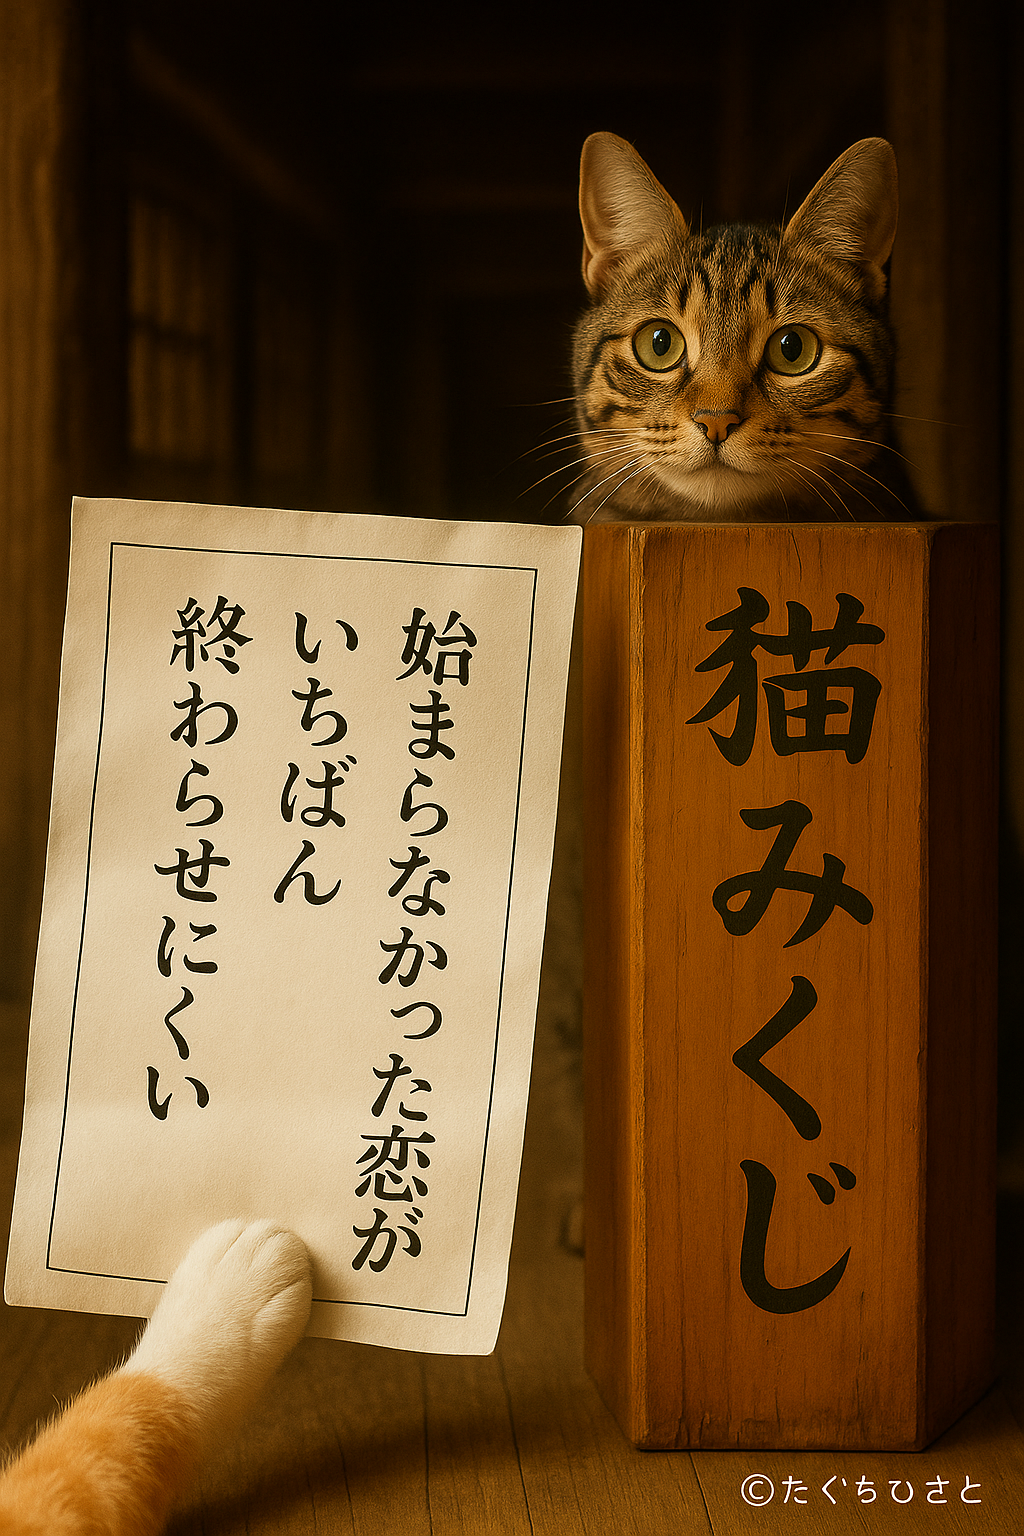 始まらなかった恋が
いちばん
終わらせにくい
猫みくじ
©たぐちひさと